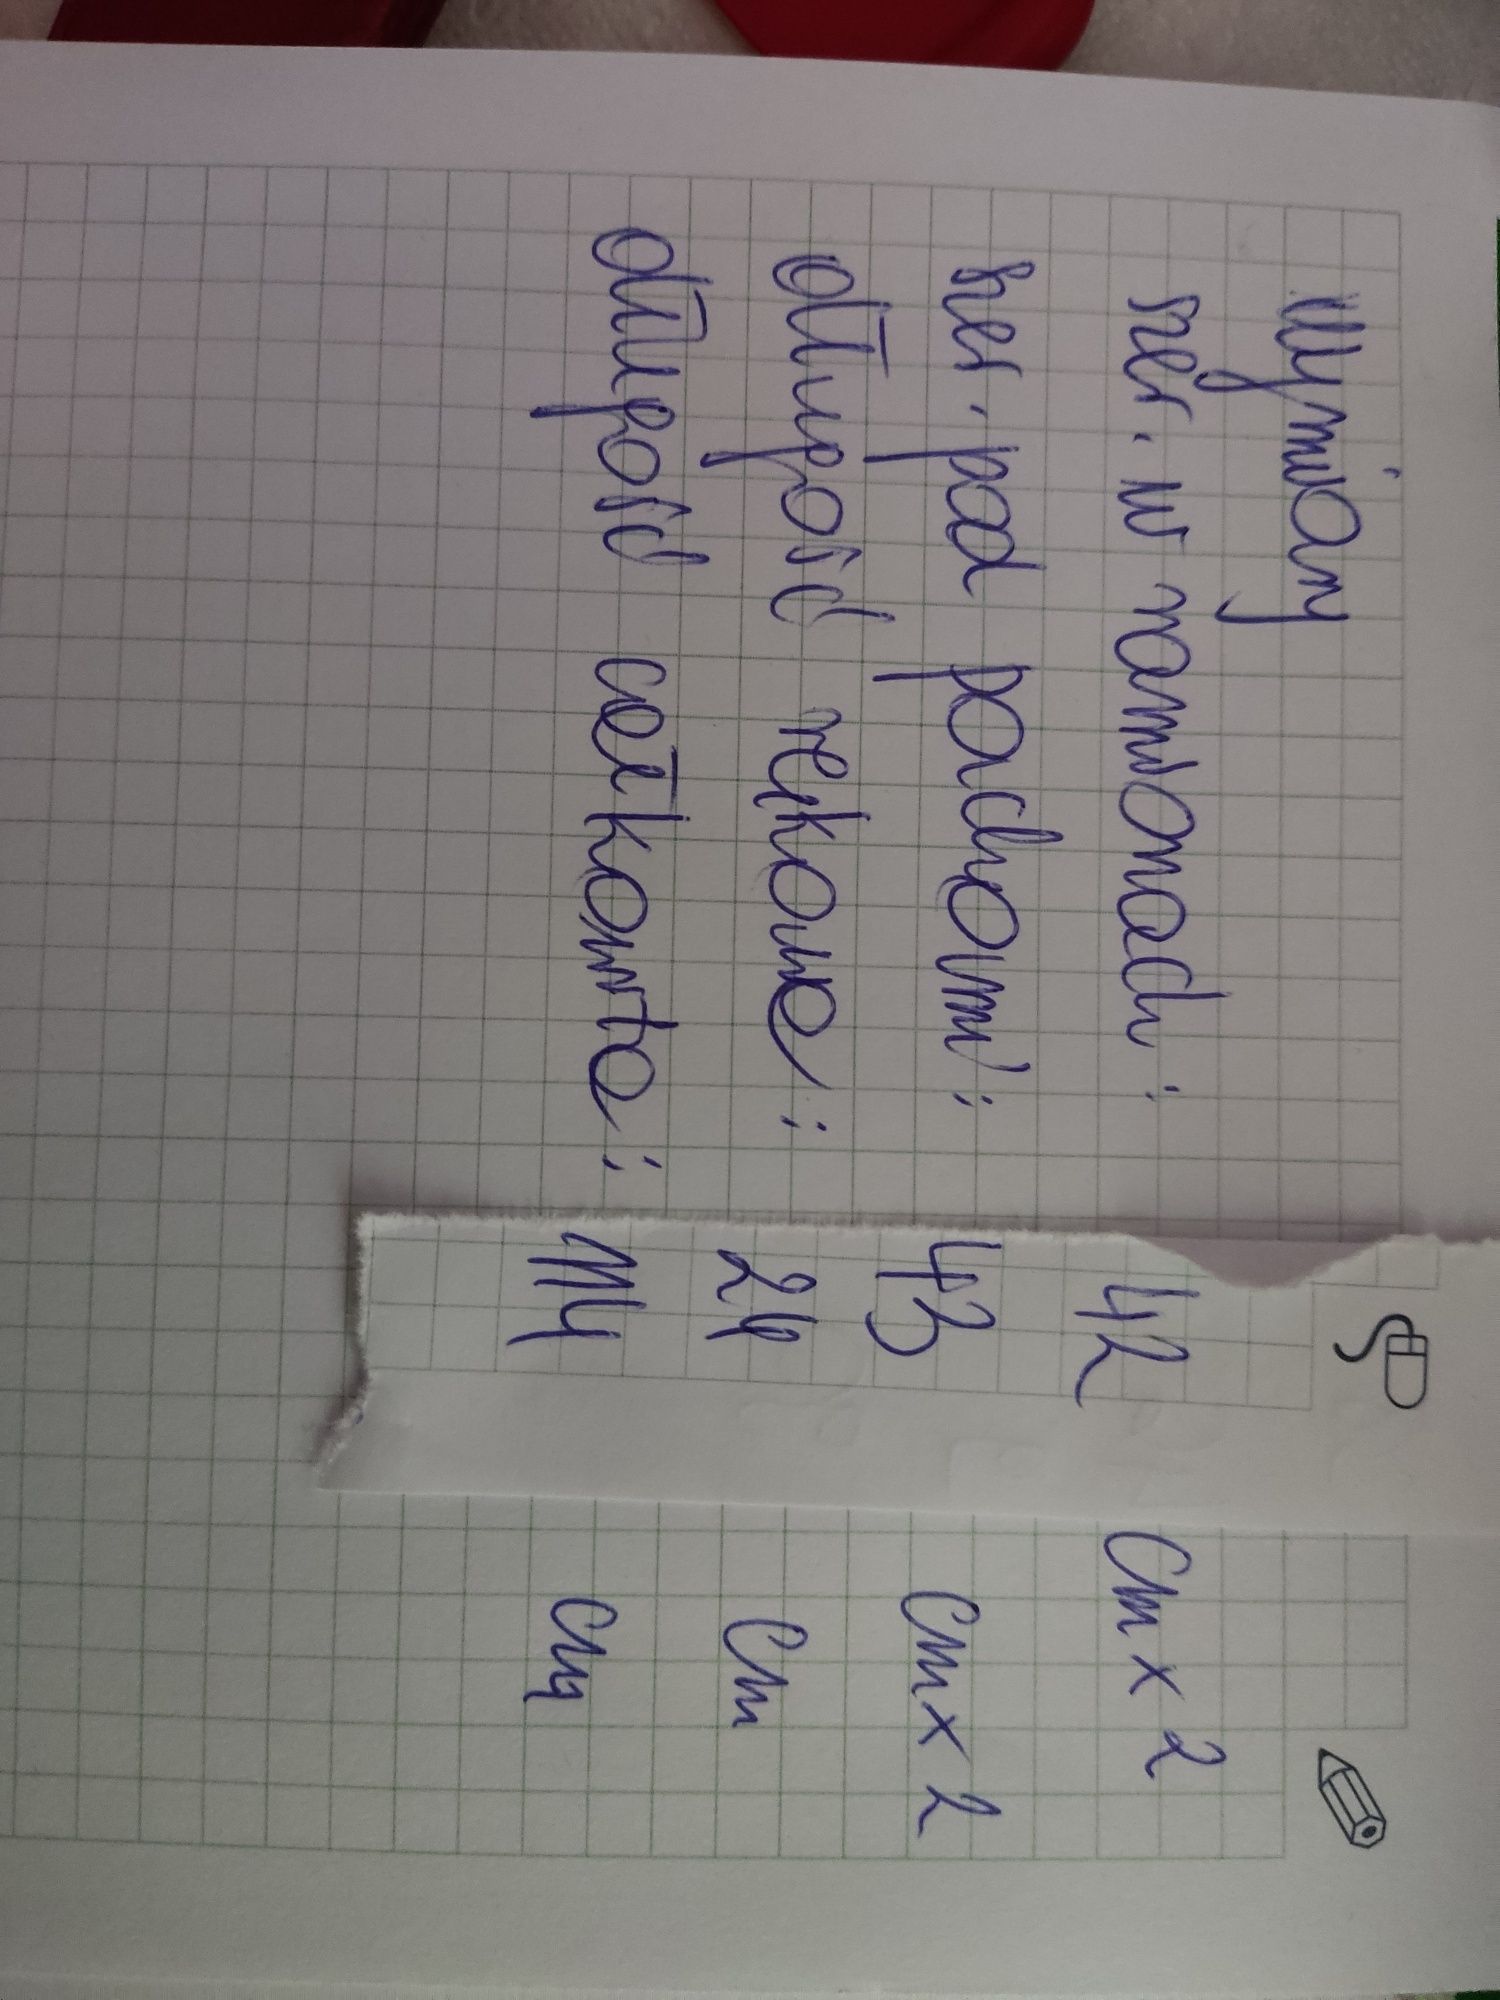 Wymiary
szer. w ramionach: 42 cm x 2
szer. pod pachami: 43 cm x 2
długość rękawa: 24 cm
długość całkowita: cm